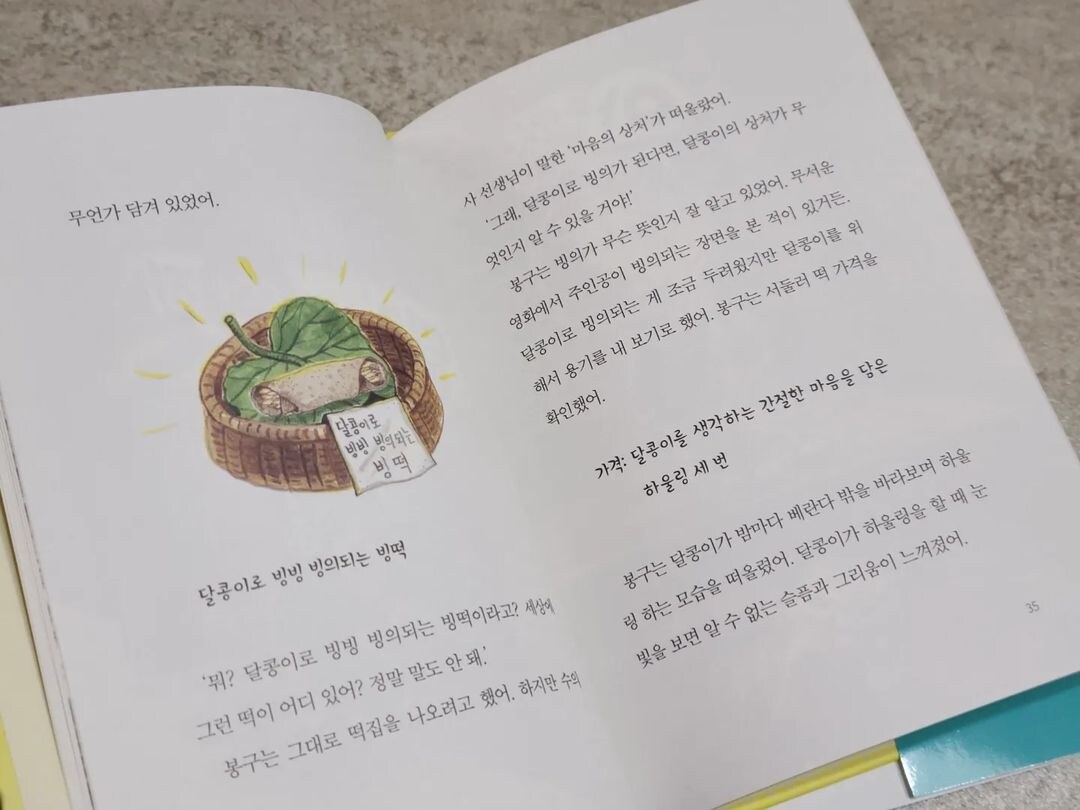 무언가 담겨 있었어.
달콩이로
빙빙 빙의되는
빙떡
달콩이로 빙빙 빙의되는 빙떡
‘뭐? 달콩이로 빙빙 빙의되는 빙떡이라고? 세상에
그런 떡이 어디 있어? 정말 말도 안 돼.’
봉구는 그대로 떡집을 나오려고 했어. 하지만 수의
사 선생님이 말한 ‘마음의 상처’가 떠올랐어.
‘그래, 달콩이로 빙의가 된다면, 달콩이의 상처가 무
엇인지 알 수 있을 거야!’
봉구는 빙의가 무슨 뜻인지 잘 알고 있었어. 무서운
영화에서 주인공이 빙의되는 장면을 본 적이 있거든.
달콩이로 빙의되는 게 조금 두려웠지만 달콩이를 위
해서 용기를 내 보기로 했어. 봉구는 서둘러 떡 가격을
확인했어.
가격: 달콩이를 생각하는 간절한 마음을 담은
하울링 세 번
봉구는 달콩이가 밤마다 베란다 밖을 바라보며 하울
링 하는 모습을 떠올렸어. 달콩이가 하울링을 할 때 눈
빛을 보면 알 수 없는 슬픔과 그리움이 느껴졌어.
35